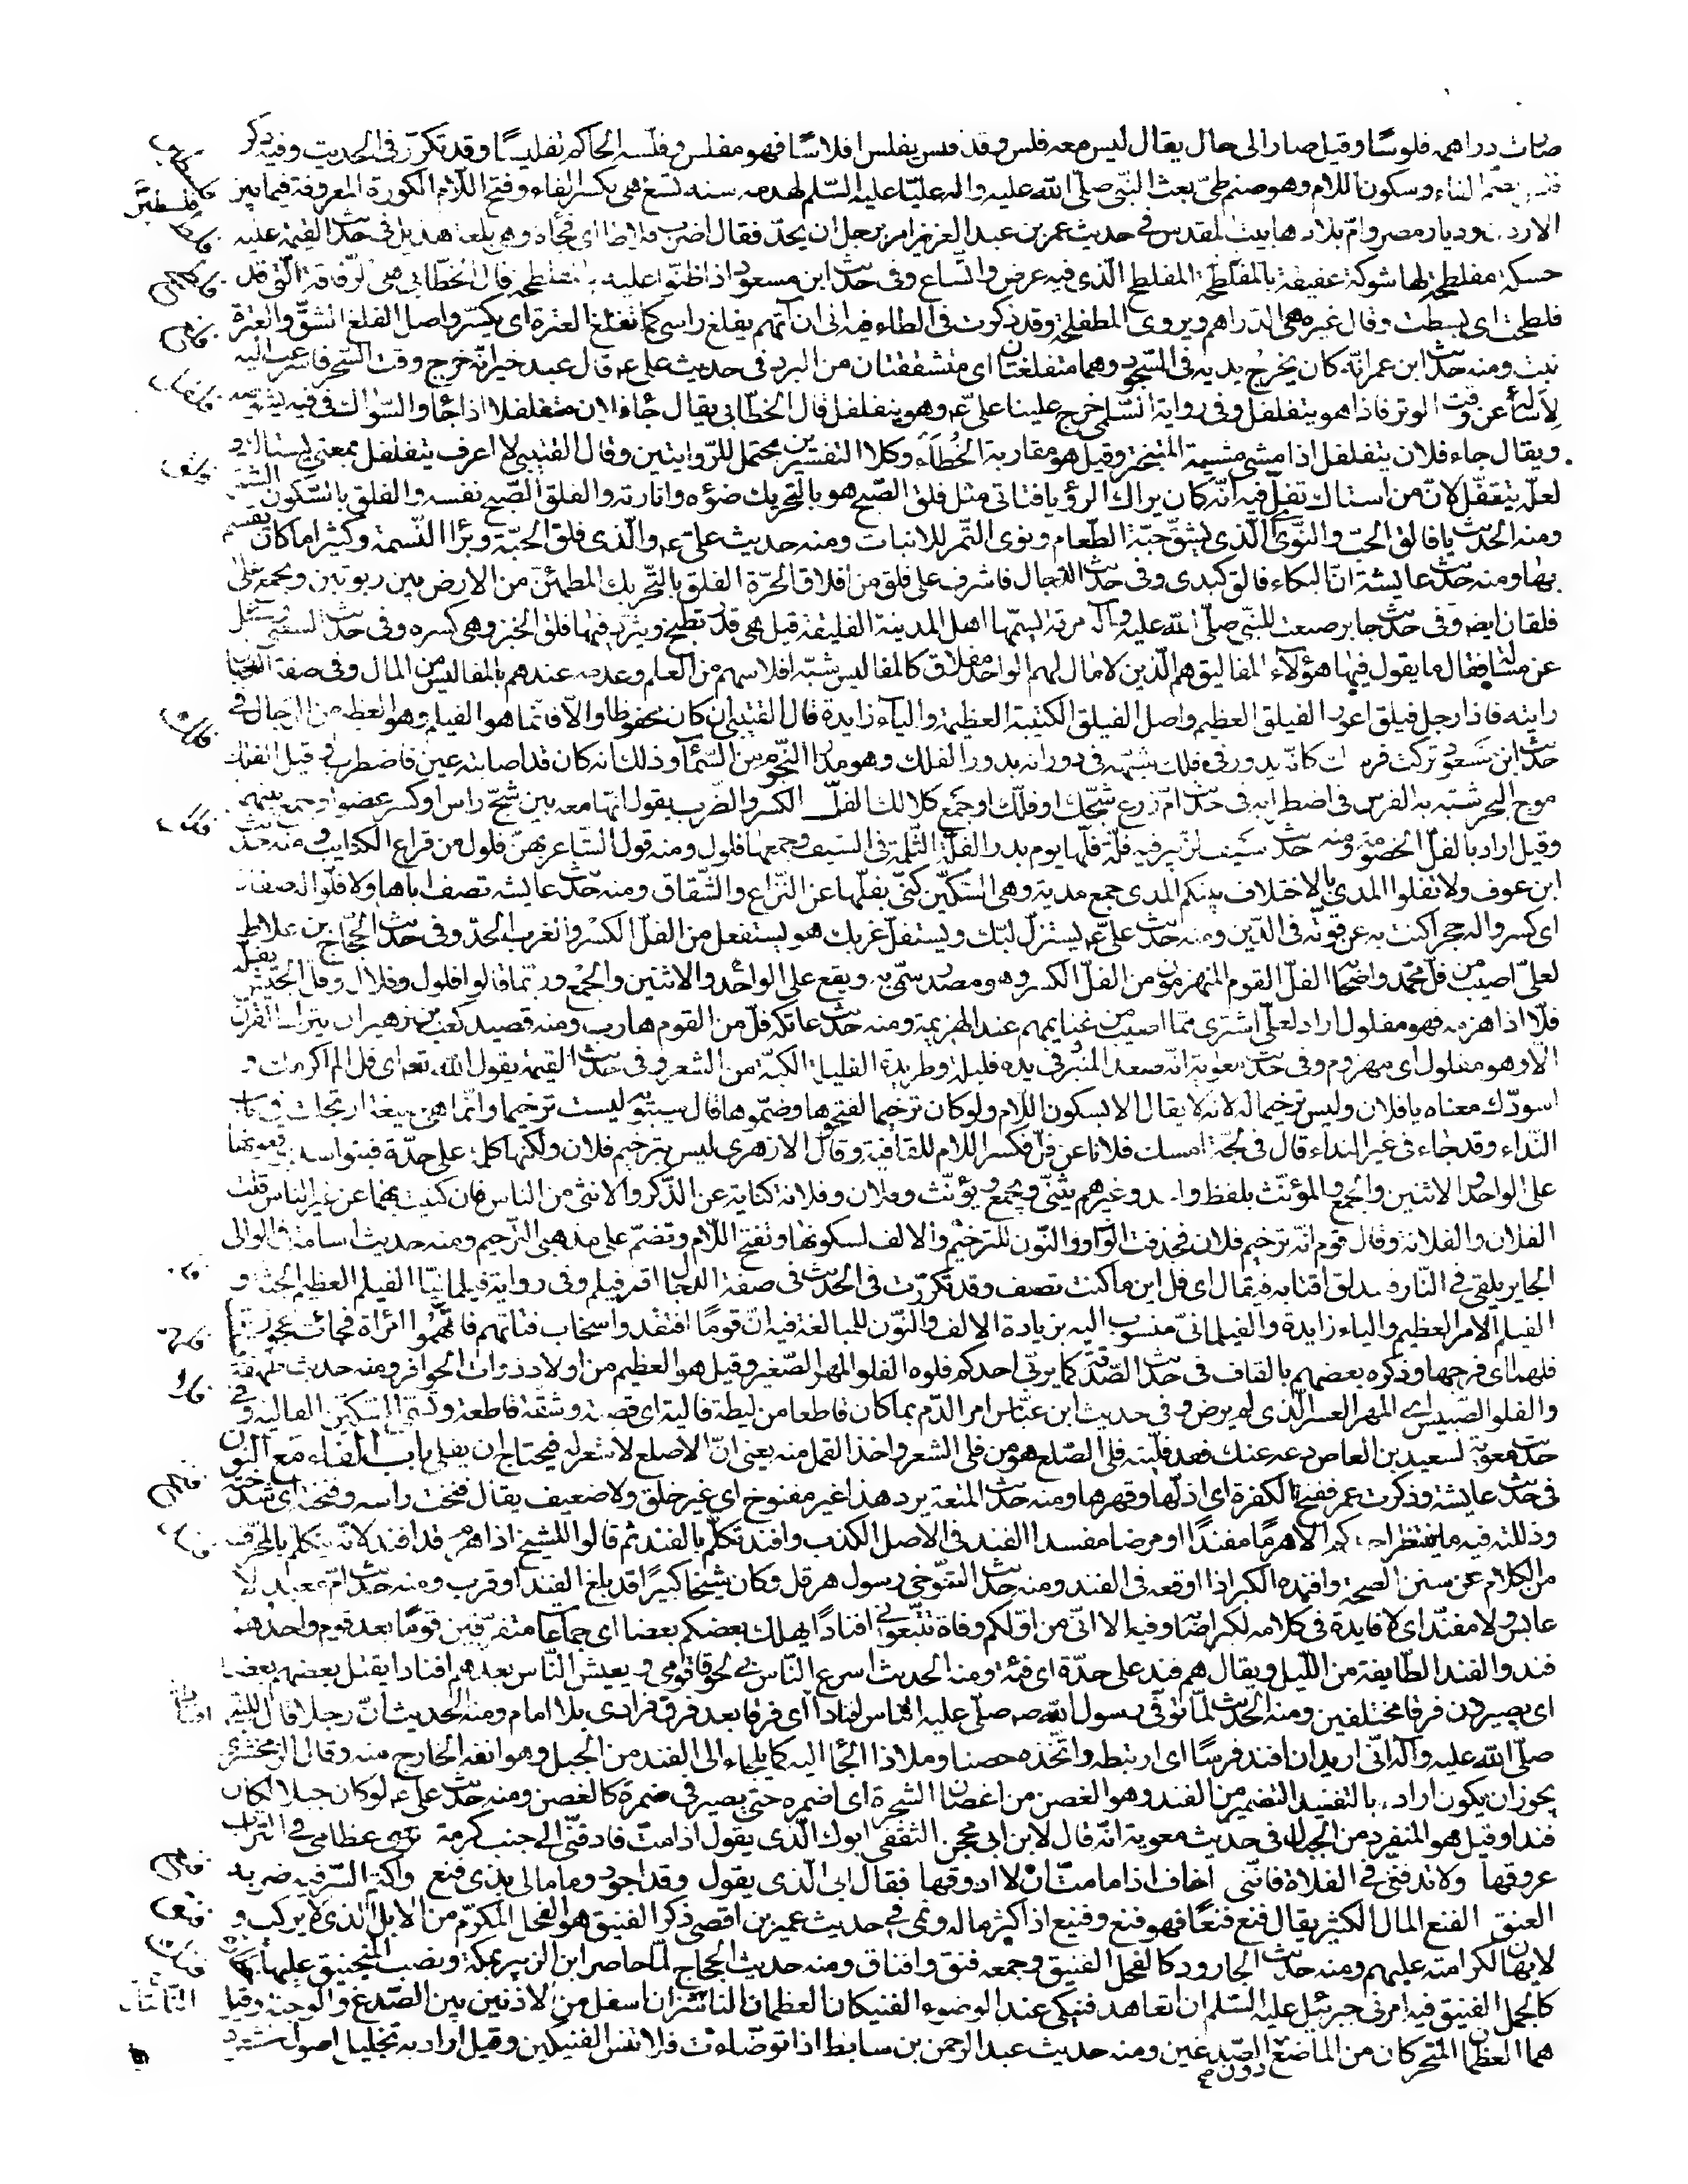 صارت دراهمه فلوسا وقيل صار الى حال يقال ليس معه فلس وقد فلس يفلس افلاسا فهو مفلس وفلسه الحاكم تفليسا وقد تكرر في الحديث وفيه ذكر
بضم الفاء وسكون اللام وهو صنم طي بعث النبي صلى الله عليه واله عليا عليه السلم لهدمه سنه تسع هي بكسر الفاء وفتح اللام الكورة المعروفة فيما بين
الاردن وديار مصر وام بلادها بيت المقدس في حديث عمر بن عبد العزيز امر برجل ان يحد فقال اضرب فلاطا اي فجأة وهي بلغة هذيل في حدث القيمة عليه
حسكة مفلطحة لها شوكة عقيفة بالمفلطحة المفلطح الذي فيه عرض واتساع وفي حدث ابن مسعود اذا ظنوا عليه بالمفلطحة قال الخطابي هي الرقاقة التي قد
فلطحت اي بسطت وقال غيره هي الدراهم ويروى المطفلحة وقد ذكرت في الطاء فيه اني ان آتهم يفلغ راسي كما تفلغ العترة اي يكسر واصل الفلغ الشق والعترة
نبت ومنه حدث ابن عمر انه كان يخرج يديه في السجود وهما متفلغتان اي متشققتان من البرد في حديث علي ع قال عبد خير انه خرج وقت السحر فاسرعت اليه
لاساله عن وقت الوتر فاذا هو يتفلفل وفي رواية السلمي خرج علينا علي ع وهو يتفلفل قال الخطابي يقال جاء فلان متفلفلا اذا جاء والسواك في فيه
ويقال جاء فلان يتفلفل اذا مشى مشية المتبختر وقيل هو مقاربة الخطا وكلا التفسيرين محتمل للروايتين وقال القتيبي لا اعرف يتفلفل بمعنى يستاك و
لعله يتتفل لان من استاك تفل فيه انه كان يرى الرؤيا فتاتي مثل فلق الصبح هو بالتحريك ضوءه وانارته والفلق الصبح نفسه والفلق بالسكون الشق
ومنه الحدث يا فالق الحب والنوى الذي يشق حبة الطعام ونوى التمر للانبات ومنه حديث علي ع والذي فلق الحبة وبرا النسمة وكثيرا ما كان يقسم
بها ومنه حدث عايشة ان البكاء فالق كبدي وفي حدث الدجال فاشرف على فلق من افلاق الحرة الفلق بالتحريك المطمئن من الارض بين ربوتين ويجمع على
فلقان ايضا وفي حدث جابر صنعت للنبي صلى الله عليه وآله مرقة يسميها اهل المدينة الفليقة قيل هي قدر تطبخ ويثرد فيها فلق الخبز وهي كسره وفي حدث الشعبي وسئل
عن مسئلة فقال ما يقول فيها هؤلاء المفاليق هم الذين لا مال لهم الواحد مفلاق كالمفاليس شبه افلاسهم من العلم وعدمه عندهم بالمفاليس من المال وفي صفة الدجال
رايته فاذا رجل فيلق اعور الفيلق العظيم واصل الفيلق الكتيبة العظيمة والياء زايدة قال القتيبي ان كان محفوظا والا فانما هو الفيلم وهو العظيم من الرجال في
حدث ابن مسعود تركت فرسك كانه يدور في فلك يشبهه في دورانه بدور الفلك وهو مدار النجوم من السماء وذلك انه كان قد اصابته عين فاضطرب وقيل الفلك
موج البحر شبه به الفرس في اضطرابه في حدث ام زرع شجك او فلك او جمع كلا لك الفل الكسر والضرب يقول انها معه بين شج راس او كسر عضو او جمع بينهما
وقيل اراد بالفل الخصومة ومنه حدث سيف الزبير فيه فلة فلها يوم بدر الفلة الثلمة في السيف وجمعها فلول ومنه قول الشاعر بهن فلول من قراع الكتايب ومنه حدث
ابن عوف ولا تفلوا المدى بالاختلاف بينكم المدى جمع مدية وهي السكين كنى بفلها عن النزاع والشقاق ومنه حدث عايشة تصف اباها ولا فلوا له صفاة
اي كسروا له حجرا كنت به عن قوته في الدين ومنه حدث علي ع يستزل لبك ويستفل غربك هو يستفعل من الفل الكسر والغرب الحد وفي حدث الحجاج بن علاط
لعلي اصيب من فل محمد واصحابه الفل القوم المنهزمون من الفل الكسر وهو مصدر سمي به ويقع على الواحد والاثنين والجمع وربما قالوا فلول وفلال وفل الجيش يفله
فلا اذا هزمه فهو مفلول اراد لعلي اشتري مما اصيب من غنايمهم عند الهزيمة ومنه حدث عاتكة فل من القوم هارب ومنه قصيد كعب بن زهير ان يترك القرن
الا وهو مفلول اي مهزوم وفي حدث معوية انه صعد المنبر وفي يده فليلة وطريدة الفليلة الكبة من الشعر وفي حدث القيمة يقول الله تعم اي فل الم اكرمك و
اسودك معناه يا فلان وليس ترخيما له لانه لا يقال الا بسكون اللام ولو كان ترخيما لفتحوها وضموها قال سيبويه ليست ترخيما وانما هي صيغة ارتجلت في باب
النداء وقد جاء في غير النداء قال في لجة امسك فلانا عن فل فكسر اللام للقافية وقال الازهري ليس بترخيم فلان ولكنها كلمة على حدة فبنو اسد يوقعونها
على الواحد والاثنين والجمع والمؤنث بلفظ واحد وغيرهم يثنى ويجمع ويؤنث وفلان وفلانة كناية عن الذكر والانثى من الناس فان كنيت بهما عن غير الناس قلت
الفلان والفلانة وقال قوم انه ترخيم فلان فحذفت الواو والنون للترخيم والالف لسكونها وتفتح اللام وتضم على مذهبي الترخيم ومنه حديث اسامة في الوالي
الجاير يلقى في النار فتندلق اقتابه فيقال اي فل اين ما كنت تصف وقد تكررت في الحدث في صفة الدجال اقمر فيلم وفي رواية فيلمانيا الفيلم العظيم الجثة و
الفيلم الامر العظيم والياء زايدة والفيلماني منسوب اليه بزيادة الالف والنون للمبالغة فيه ان قوما افتقدوا سخاب فتاتهم فاتهموا امراة فجاءت عجوز
فلهمها اي فرجها وذكره بعضهم بالقاف في حدث الصدقة كما يربي احدكم فلوه الفلو المهر الصغير وقيل هو العظيم من اولاد ذوات الحوافر ومنه حديث طهفة
والفلو الضبيس اي المهر العسر الذي لم يرض وفي حديث ابن عباس امر الدم بما كان قاطعا من ليطة فالية اي قصبة وشقة قاطعة وتسمى السكين الفالية وفي
حدث معوية لسعيد بن العاص دعه عنك فقد فليته فلي الصلع هو من فلي الشعر واخذ القمل منه يعني ان الاصلع لا شعر له فيحتاج ان يفلى باب الفاء مع النون
في حدث عايشة وذكرت عمر ففنخ الكفرة اي اذلها وقهرها ومنه حدث المتعة برد هذا غير مفنوخ اي غير خلق ولا ضعيف يقال فنخت راسه وفنخته اي شدخته
وذللته فيه ما ينتظر احدكم الا هرما مفندا او مرضا مفسدا الفند في الاصل الكذب وافند تكلم بالفند ثم قالوا للشيخ اذا هرم قد افند لانه يتكلم بالمحرف
من الكلام عن سنن الصحة وافنده الكبر اذا اوقعه في الفند ومنه حدث التنوخي رسول هرقل وكان شيخا كبيرا قد بلغ الفند او قرب ومنه حدث ام معبد لا
عابس ولا مفند اي لا فايدة في كلامه لكبر اصابه وفيه الا اني من اولكم وفاة تتبعوني افنادا يهلك بعضكم بعضا اي جماعات متفرقين قوما بعد قوم واحدهم
فند والفند الطايفة من الليل ويقال هم فند على حدة اي فئة ومنه الحديث اسرع الناس بي لحوقا قومي ويعيش الناس بعدهم افنادا يقتل بعضهم بعضا
اي يصيرون فرقا مختلفين ومنه الحدث لما توفي رسول الله صم صلى عليه الناس افنادا اي فرقا بعد فرق فرادى بلا امام ومنه الحديث ان رجلا قال للنبي
صلى الله عليه وآله اني اريد ان افند فرسا اي ارتبطه واتخذه حصنا وملاذا الجأ اليه كما يلجاء الى الفند من الجبل وهو انفه الخارج منه وقال الزمخشري
يجوز ان يكون اراد بالتفنيد التضمير من الفند وهو الغصن من اغصان الشجرة اي اضمره حتى يصير في ضمرة كالغصن ومنه حدث علي ع لو كان جبلا لكان
فندا وقيل هو المنفرد من الجبال في حديث معوية انه قال لابن ابي محجن الثقفي ابوك الذي يقول اذا مت فادفني الى جنب كرمة تروي عظامي في التراب
عروقها ولا تدفنني في الفلاة فانني اخاف اذا ما مت ان لا اذوقها فقال ابي الذي يقول وقد اجود وما مالي بذي فنع واكتم السر فيه ضربة
العنق الفنع المال الكثير يقال فنع فنعا فهو فنع وفنيع اذا كثر ماله ونمى في حديث عمير بن اقصى ذكر الفنيق هو الفحل المكرم من الابل الذي لا يركب و
لا يهان لكرامته عليهم ومنه حدث الجارود كالفحل الفنيق وجمعه فنق وافناق ومنه حديث الحجاج لما حاصر ابن الزبير بمكة ونصب المنجنيق عليها
كالجمل الفنيق فيه امرني جبرئيل عليه السلم ان اتعاهد فنيكي عند الوضوء الفنيكان العظمان الناشزان اسفل من الاذنين بين الصدغ والوجنة وقيل
هما العظمان المتحركان من الماضغ دون الصدغين ومنه حديث عبد الرحمن بن سابط اذا توضات فلا تنس الفنيكين وقيل اراد به تخليل اصول شعر